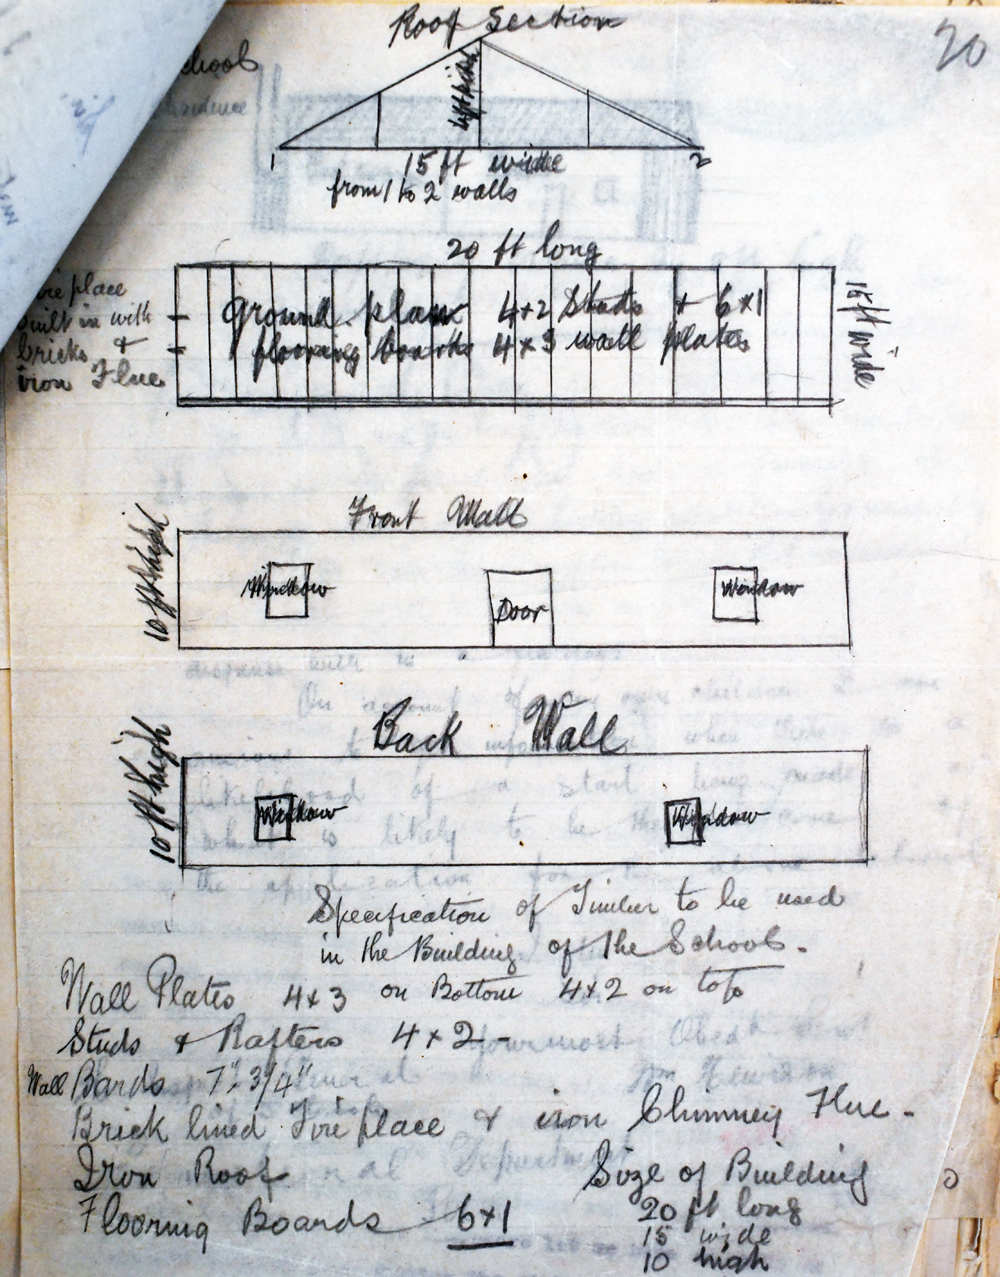 20
Roof Section
15 ft wide
1
2
from 1 to 2 walls
20 ft long
ground plan 4x2 Studs + 6x1
flooring boards 4x3 wall plates
15 ft wide
place
built in with
bricks &
iron Flue
Front Wall
10 ft high
Window
Door
Window
Back Wall
10 ft high
Window
Window
Specification of Timber to be used
in the Building of the School.
Wall Plates 4x3 on Bottom 4x2 on top
Studs & Rafters 4x2 -
Wall Bards 7" 3/4"
Brick lined Fire place & iron Chimney Flue -
Iron Roof
Flooring Boards 6x1
Size of Building
20 ft long
15 wide
10 high